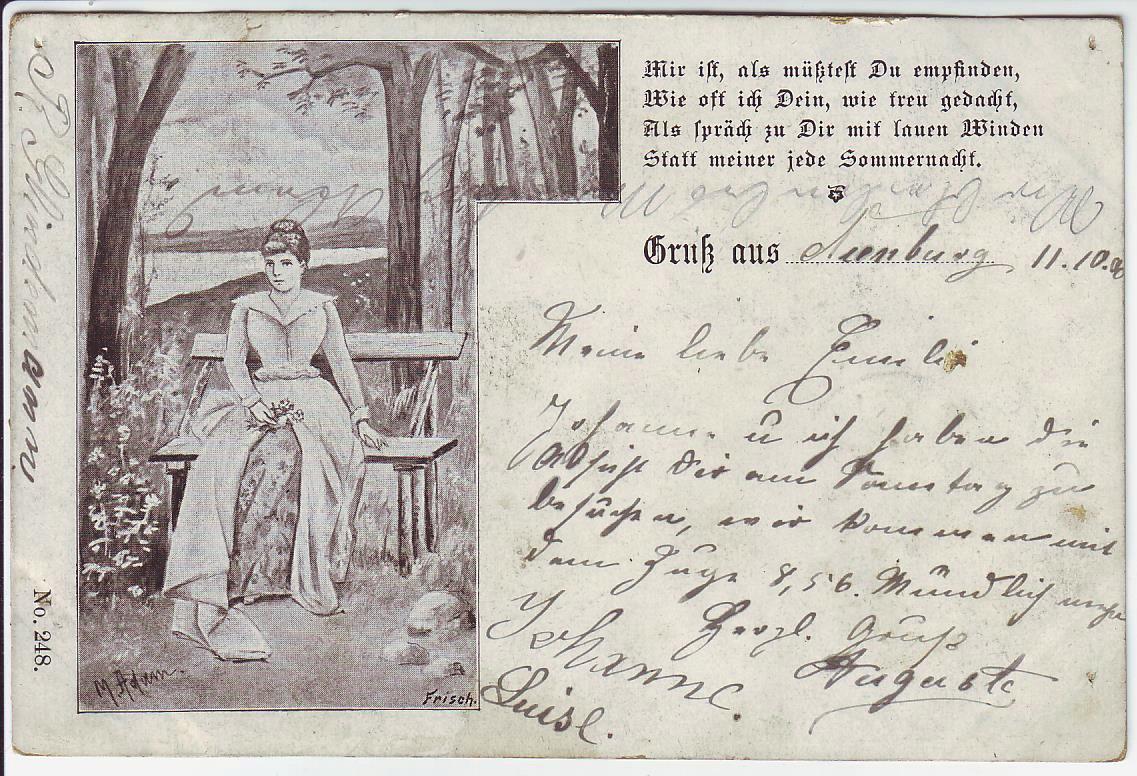 Mir ist, als müßtest Du empfinden,
Wie oft ich Dein, wie treu gedacht,
Als spräch zu Dir mit lauen Winden
Statt meiner jede Sommernacht.
Gruß aus Nienburg 11.10.
Meine liebe Emilie
Johanne u ich haben die
Absicht Dir am Sonntag zu
besuchen, wir kommen mit
dem Zuge 8,56. Mündlich mehr
Herzl. Gruß
Johanne. Auguste
Luise.
M. Adam.
Frisch.
No. 248.